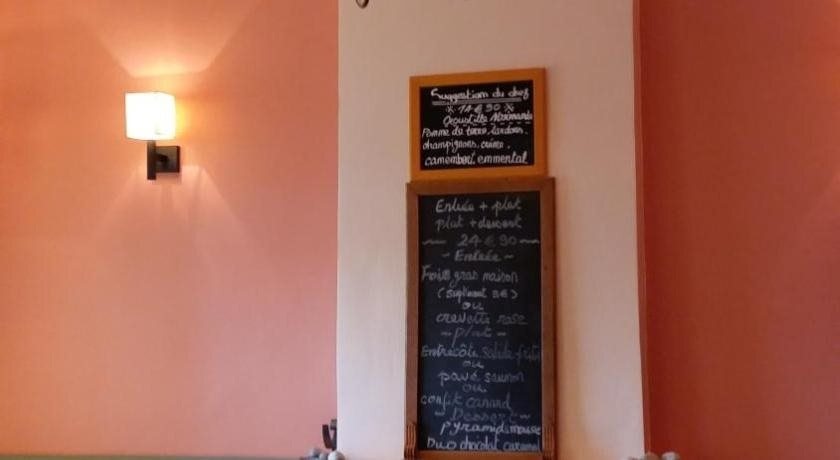 Suggestion du chef
14€90
Croustille Normande
Pomme de terre, lardons,
champignons, crème,
camembert, emmental
Entrée + plat
plat + dessert
24€90
- Entrée -
Foie gras maison
(Suplément 3€)
ou
crevette rose
- plat -
Entrecôte salade frites
ou
pavé saumon
ou
confit canard
Dessert -
pyramid mousse
Duo chocolat caramel